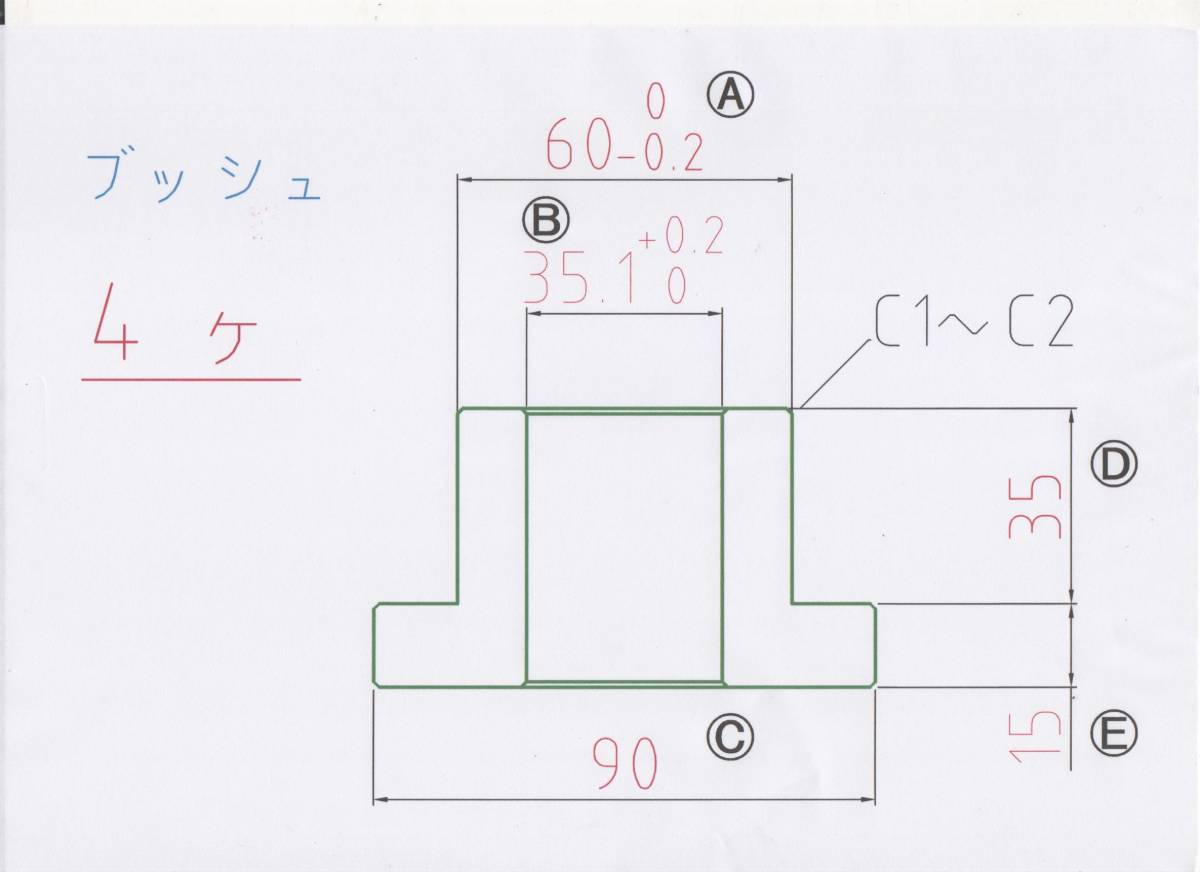 ブッシュ
4ヶ
60 0 -0.2 Ⓐ
Ⓑ
35.1 +0.2 0
C1～C2
35 Ⓓ
15 Ⓔ
90 Ⓒ